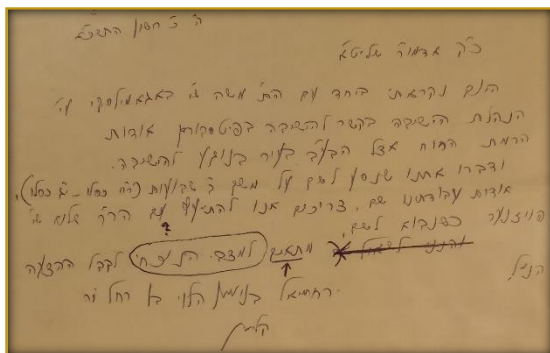 ה' כ"ז חשון התשכ"א
כ"ק אדמו"ר שליט"א
הינם נקראתי ביחד עם הת' משה שי' באגאמילסקי ע"י
הנהלת הישיבה בקשר להישיבה בפיטסבורג אודות
הרמת הרוח אצל הבע"ב בעיר בנוגע להישיבה.
ודברו אתנו שנסע לשם על משך ב' שבועות כסלו - כסלו),
אודות עבודתנו שם. צריכים אנו להתיעץ עם הר"ר שלום שי'
פויזנער כשנבוא לשם.
?
והנני לשאול מתאים למצבי לקבל ההצעה
הנ"ל.
ירחמיאל בנימין הלוי בן רחל
קליין